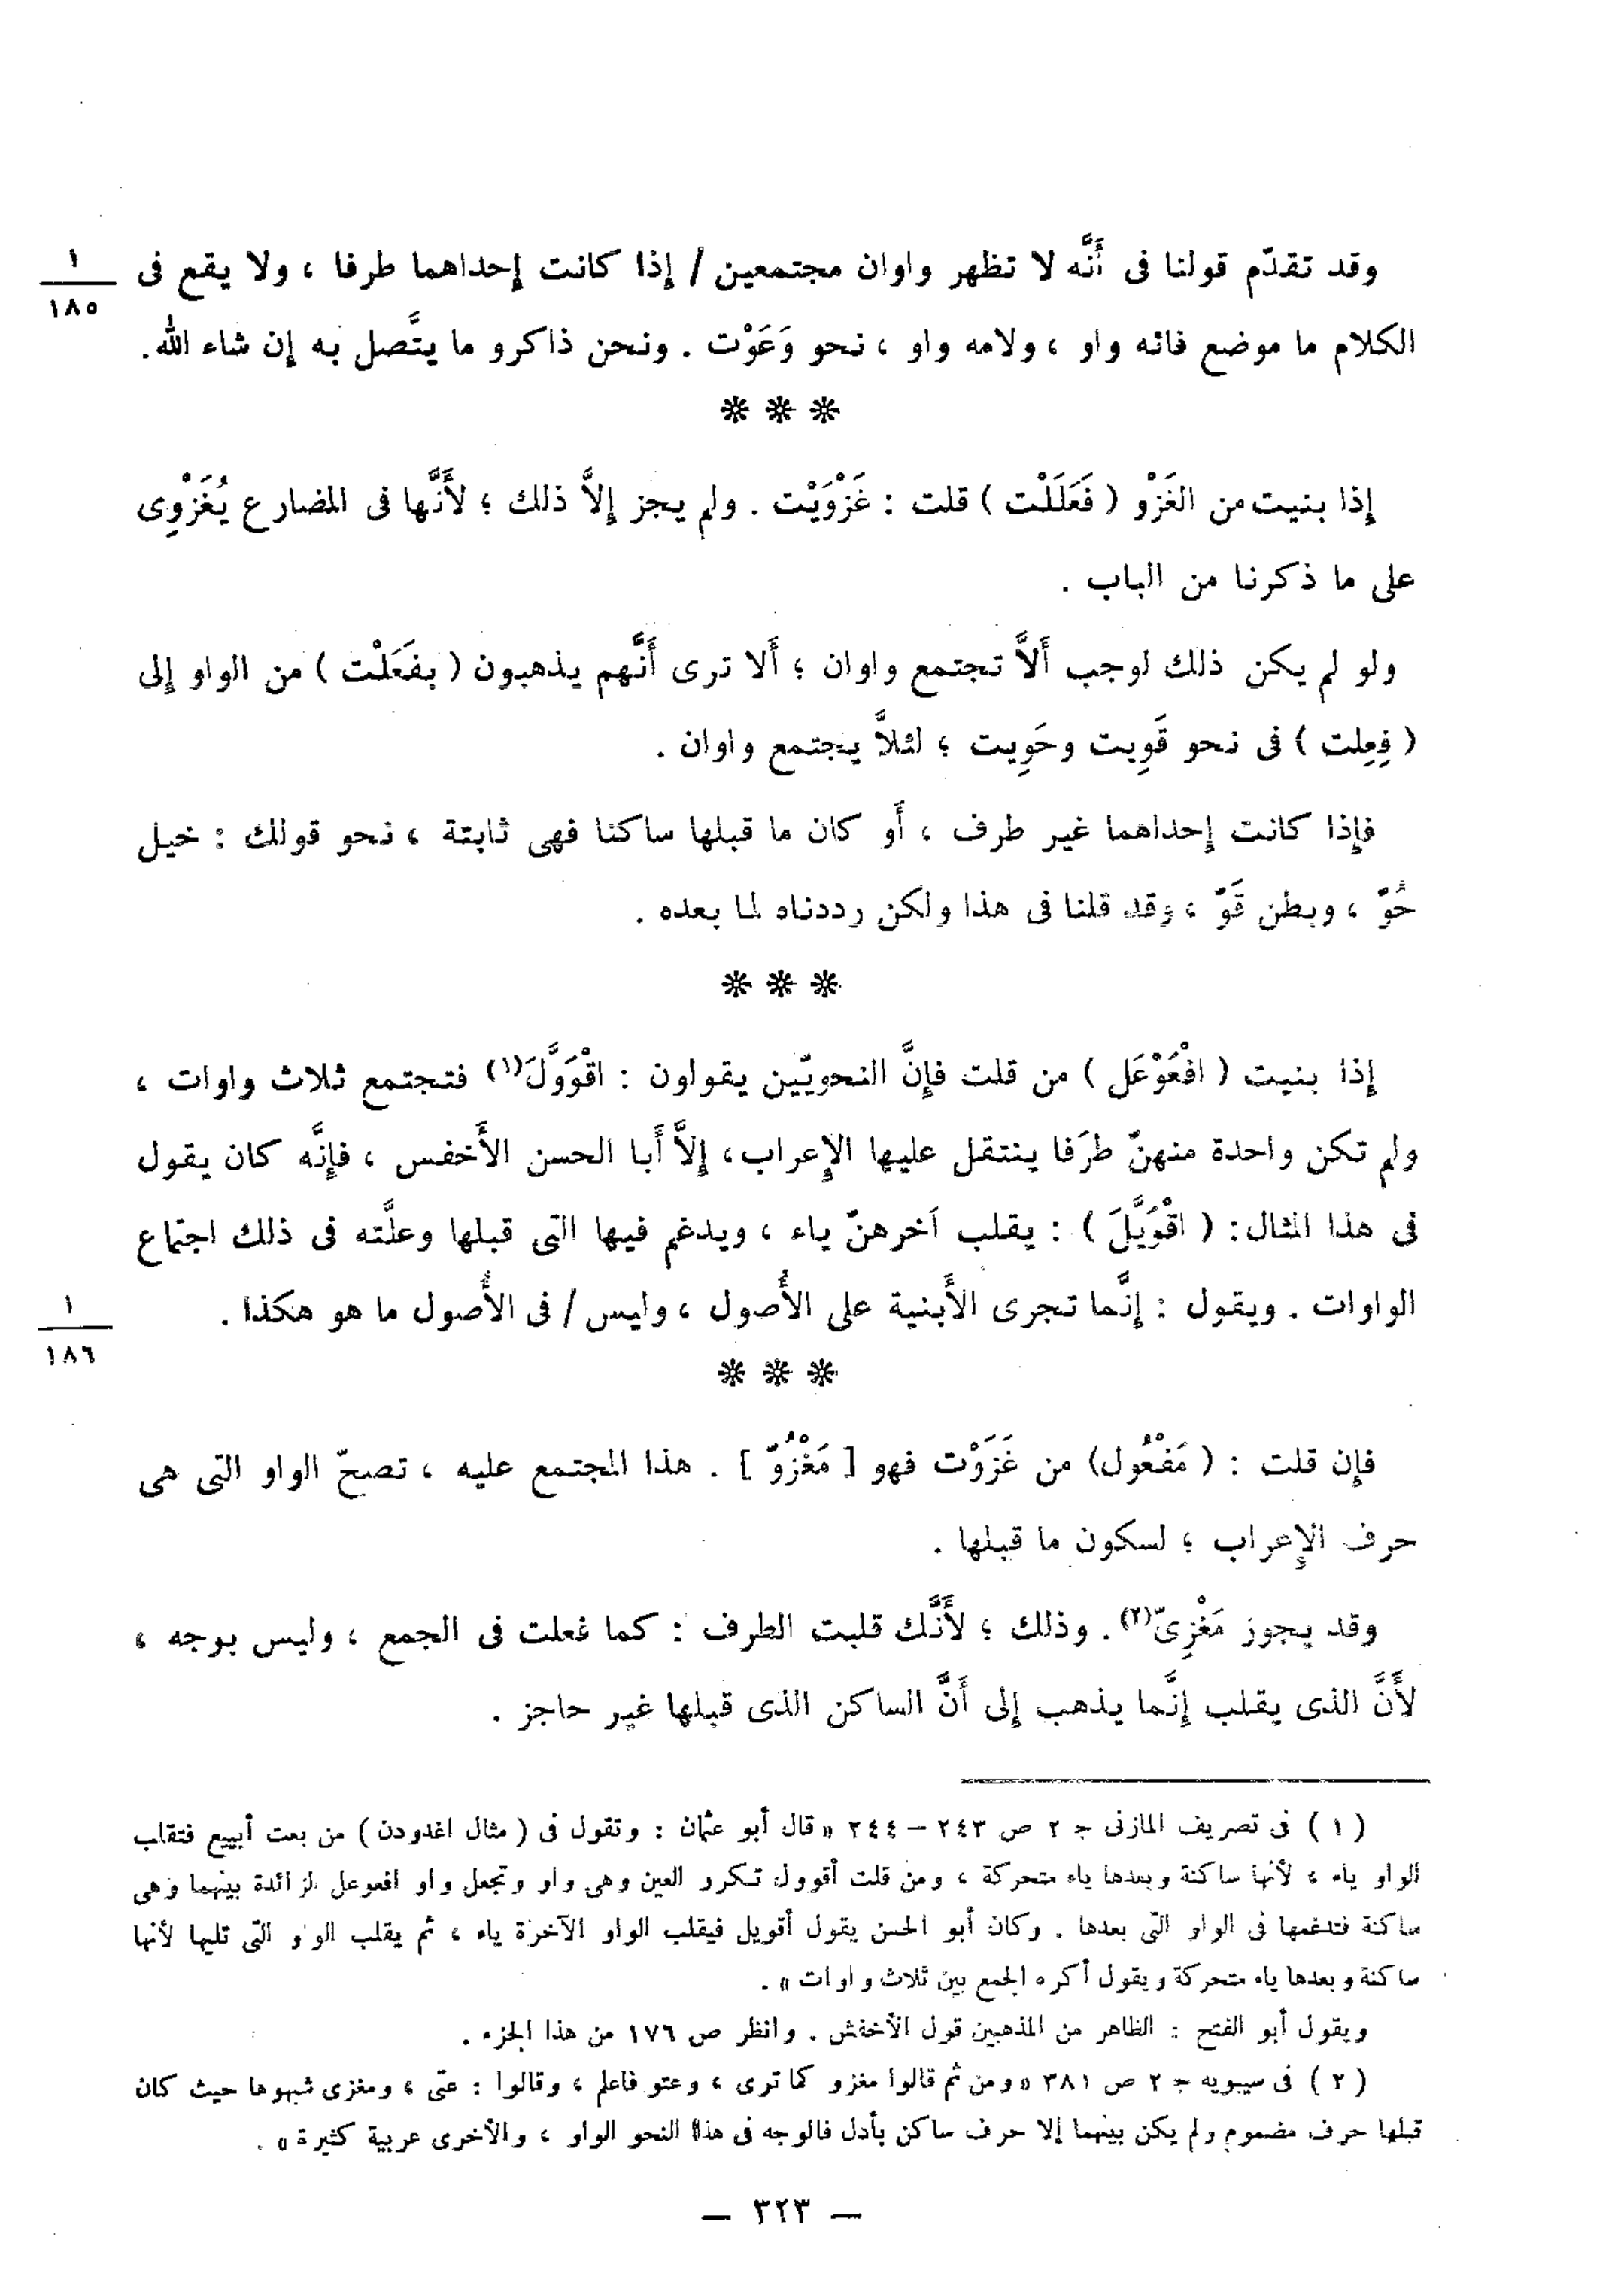 وقد تقدّم قولنا فى أَنَّه لا تظهر واوان مجتمعين / إذا كانت إحداهما طرفا ، ولا يقع فى
١
١٨٥
الكلام ما موضع فائه واو ، ولامه واو ، نحو وَعَوْت . ونحن ذاكرو ما يتَّصل به إن شاء الله.
❊ ❊ ❊
إذا بنيت من الغَزْو ( فَعَلَلْت ) قلت : غَزْوَيْت . ولم يجز إلاَّ ذلك ؛ لأَنَّها فى المضارع يُغَزْوِى
على ما ذكرنا من الباب .
ولو لم يكن ذلك لوجب أَلاَّ تجتمع واوان ؛ أَلا ترى أَنَّهم يذهبون ( بفَعَلْت ) من الواو إلى
( فِعِلت ) فى نحو قَوِيت وحَوِيت ؛ لئلاَّ يجتمع واوان .
فإذا كانت إحداهما غير طرف ، أَو كان ما قبلها ساكنا فهى ثابتة ، نحو قولك : خيل
حُوّ ، وبطن قَوّ ، وقد قلنا فى هذا ولكن رددناه لما بعده .
❊ ❊ ❊
إذا بنيت ( افْعَوْعَل ) من قلت فإنَّ النحويّين يقولون : اقْوَوَّلَ(١) فتجتمع ثلاث واوات ،
ولم تكن واحدة منهنّ طرَفا ينتقل عليها الإعراب، إلاَّ أَبا الحسن الأَخفس ، فإنَّه كان يقول
فى هذا المثال: ( اقْوَيَّلَ ) : يقلب آخرهنّ ياء ، ويدغم فيها التى قبلها وعلَّته فى ذلك اجتماع
الواوات . ويقول : إنَّما تجرى الأَبنية على الأُصول ، وليس / فى الأُصول ما هو هكذا .
١
١٨٦
❊ ❊ ❊
فإن قلت : ( مَفْعُول) من غَزَوْت فهو [ مَغْزُوّ ] . هذا المجتمع عليه ، تصحّ الواو التى هى
حرف الإعراب ؛ لسكون ما قبلها .
وقد يجوز مَغْزِىّ(٢). وذلك ؛ لأَنَّك قلبت الطرف : كما فعلت فى الجمع ، وليس بوجه ،
لأَنَّ الذى يقلب إنَّما يذهب إلى أَنَّ الساكن الذى قبلها غير حاجز .
( ١ ) فى تصريف المازنى ج ٢ ص ٢٤٣ – ٢٤٤ « قال أبو عثمان : وتقول فى ( مثال اغدودن ) من بعت أبييع فتقلب
الواو ياء ، لأنها ساكنة وبعدها ياء متحركة ، ومن قلت أقوول تكرر العين وهى واو وتجعل واو افعوعل الزائدة بينهما وهى
ساكنة فتدغمها فى الواو التى بعدها . وكان أبو الحسن يقول أقويل فيقلب الواو الآخرة ياء ، ثم يقلب الواو التى تليها لأنها
ساكنة وبعدها ياء متحركة ويقول أكره الجمع بين ثلاث واوات » .
ويقول أبو الفتح : الظاهر من المذهبين قول الأخفش . وانظر ص ١٧٦ من هذا الجزء .
( ٢ ) فى سيبويه ج ٢ ص ٣٨١ « ومن ثم قالوا مغزو كما ترى ، وعتو فاعلم ، وقالوا : عتى ، ومغزى شبهوها حيث كان
قبلها حرف مضموم ولم يكن بينهما إلا حرف ساكن بأدل فالوجه فى هذا النحو الواو ، والأخرى عربية كثيرة » .
— ٣٢٣ —